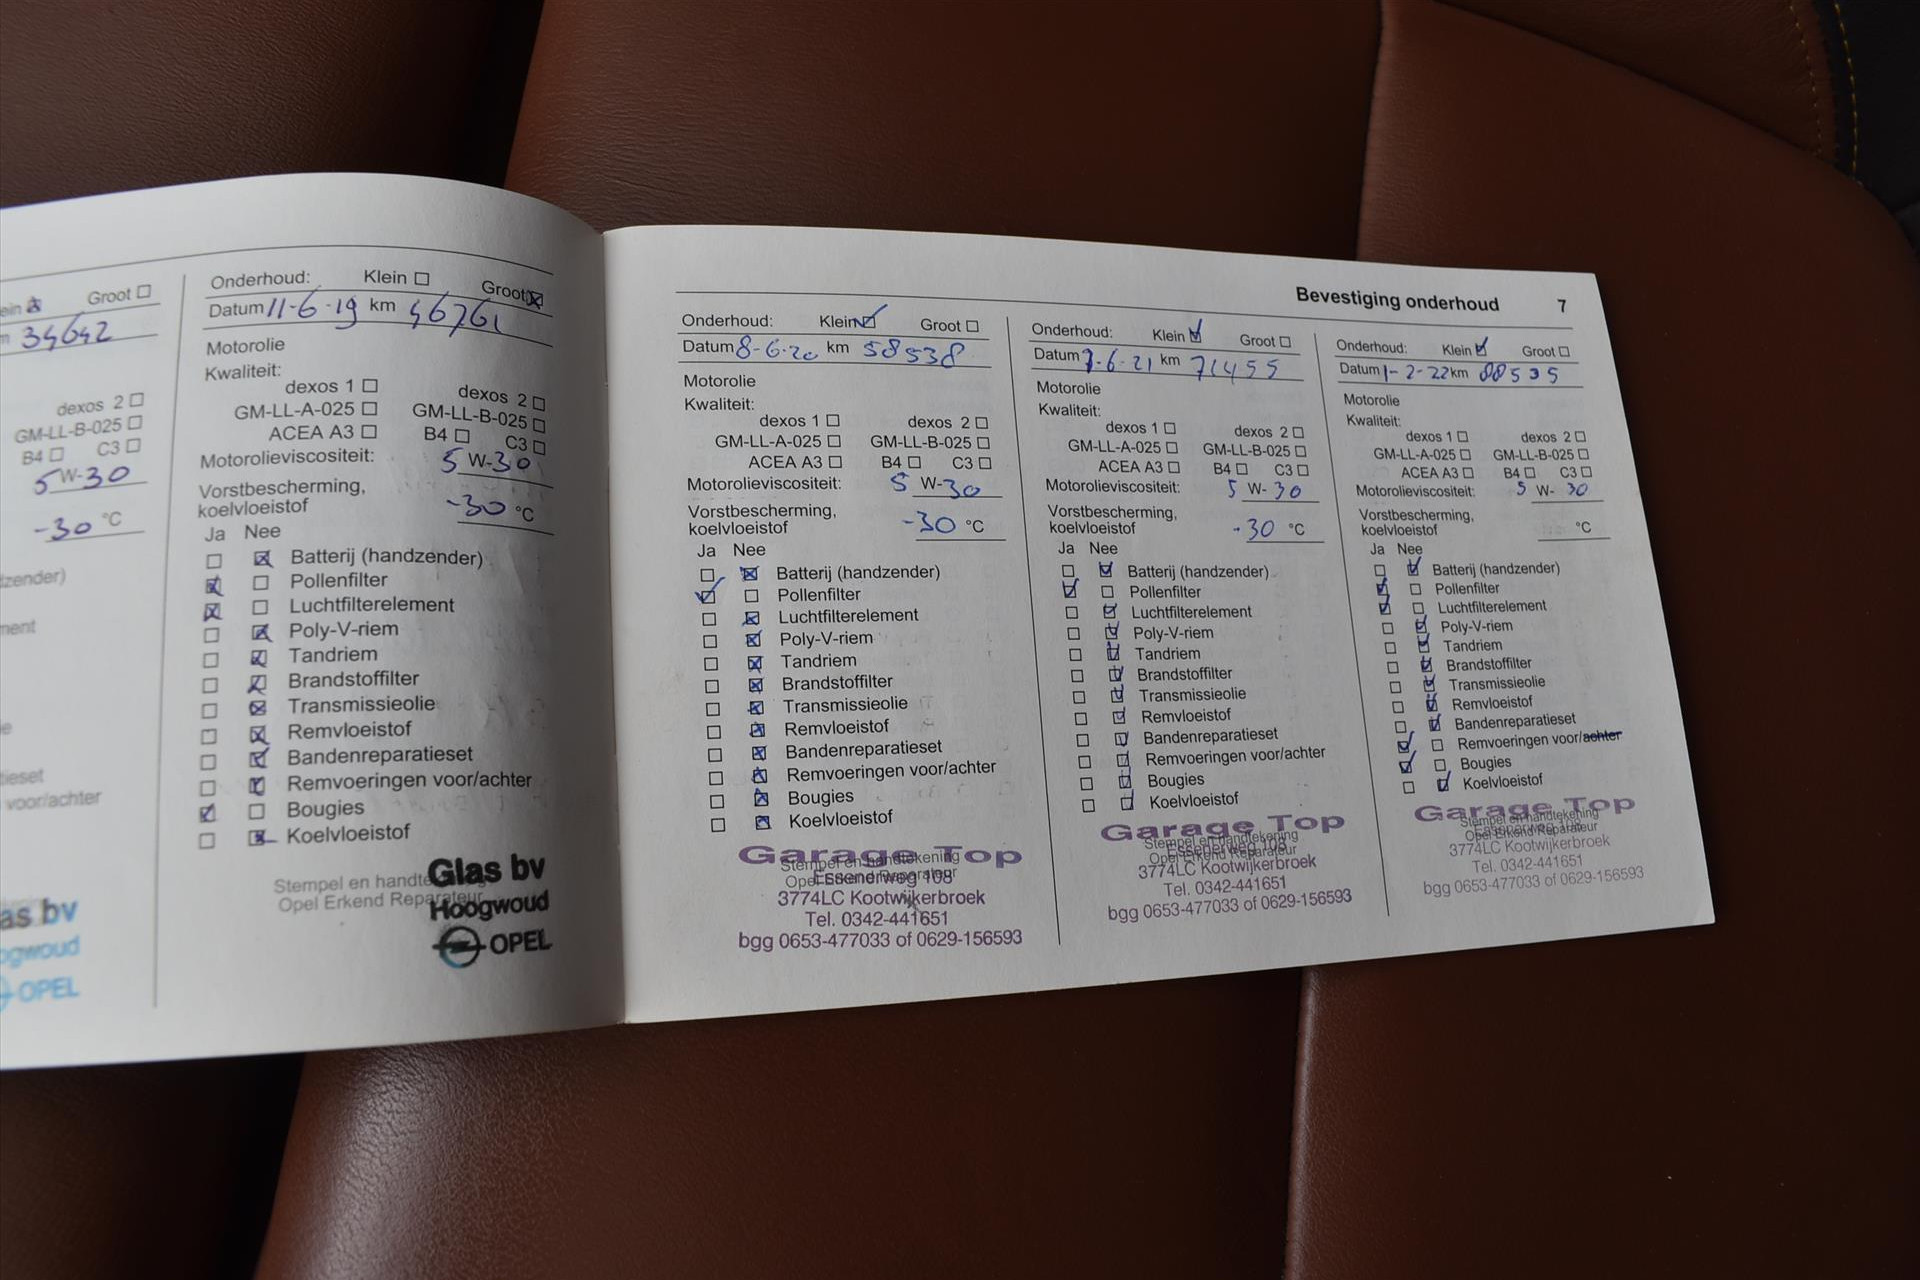 Groot
34642
dexos 2
GM-LL-B-025
B4 C3
5 W-30
-30 °C
voor/achter
OPEL
Onderhoud: Klein Groot
Datum 11-6-19 km 46761
Motorolie
Kwaliteit:
dexos 1 dexos 2
GM-LL-A-025 GM-LL-B-025
ACEA A3 B4 C3
Motorolieviscositeit: 5 W-30
Vorstbescherming,
koelvloeistof -30 °C
Ja Nee
Batterij (handzender)
Pollenfilter
Luchtfilterelement
Poly-V-riem
Tandriem
Brandstoffilter
Transmissieolie
Remvloeistof
Bandenreparatieset
Remvoeringen voor/achter
Bougies
Koelvloeistof
Glas bv
Hoogwoud
OPEL
Stempel en
Opel Erkend Reparateur
Bevestiging onderhoud 7
Onderhoud: Klein Groot
Datum 8-6-20 km 58538
Motorolie
Kwaliteit:
dexos 1 dexos 2
GM-LL-A-025 GM-LL-B-025
ACEA A3 B4 C3
Motorolieviscositeit: 5 W-30
Vorstbescherming,
koelvloeistof -30 °C
Ja Nee
Batterij (handzender)
Pollenfilter
Luchtfilterelement
Poly-V-riem
Tandriem
Brandstoffilter
Transmissieolie
Remvloeistof
Bandenreparatieset
Remvoeringen voor/achter
Bougies
Koelvloeistof
Garage Top
Stempel en handtekening
Opel Erkend Reparateur
Essenerweg 108
3774LC Kootwijkerbroek
Tel. 0342-441651
bgg 0653-477033 of 0629-156593
Onderhoud: Klein Groot
Datum 7-6-21 km 71455
Motorolie
Kwaliteit:
dexos 1 dexos 2
GM-LL-A-025 GM-LL-B-025
ACEA A3 B4 C3
Motorolieviscositeit: 5 W-30
Vorstbescherming,
koelvloeistof -30 °C
Ja Nee
Batterij (handzender)
Pollenfilter
Luchtfilterelement
Poly-V-riem
Tandriem
Brandstoffilter
Transmissieolie
Remvloeistof
Bandenreparatieset
Remvoeringen voor/achter
Bougies
Koelvloeistof
Garage Top
Stempel en handtekening
Opel Erkend Reparateur
Essenerweg 108
3774LC Kootwijkerbroek
Tel. 0342-441651
bgg 0653-477033 of 0629-156593
Onderhoud: Klein Groot
Datum 1-2-22 km 88535
Motorolie
Kwaliteit:
dexos 1 dexos 2
GM-LL-A-025 GM-LL-B-025
ACEA A3 B4 C3
Motorolieviscositeit: 5 W-30
Vorstbescherming,
koelvloeistof °C
Ja Nee
Batterij (handzender)
Pollenfilter
Luchtfilterelement
Poly-V-riem
Tandriem
Brandstoffilter
Transmissieolie
Remvloeistof
Bandenreparatieset
Remvoeringen voor/achter
Bougies
Koelvloeistof
Garage Top
Stempel en handtekening
Opel Erkend Reparateur
Essenerweg 108
3774LC Kootwijkerbroek
Tel. 0342-441651
bgg 0653-477033 of 0629-156593